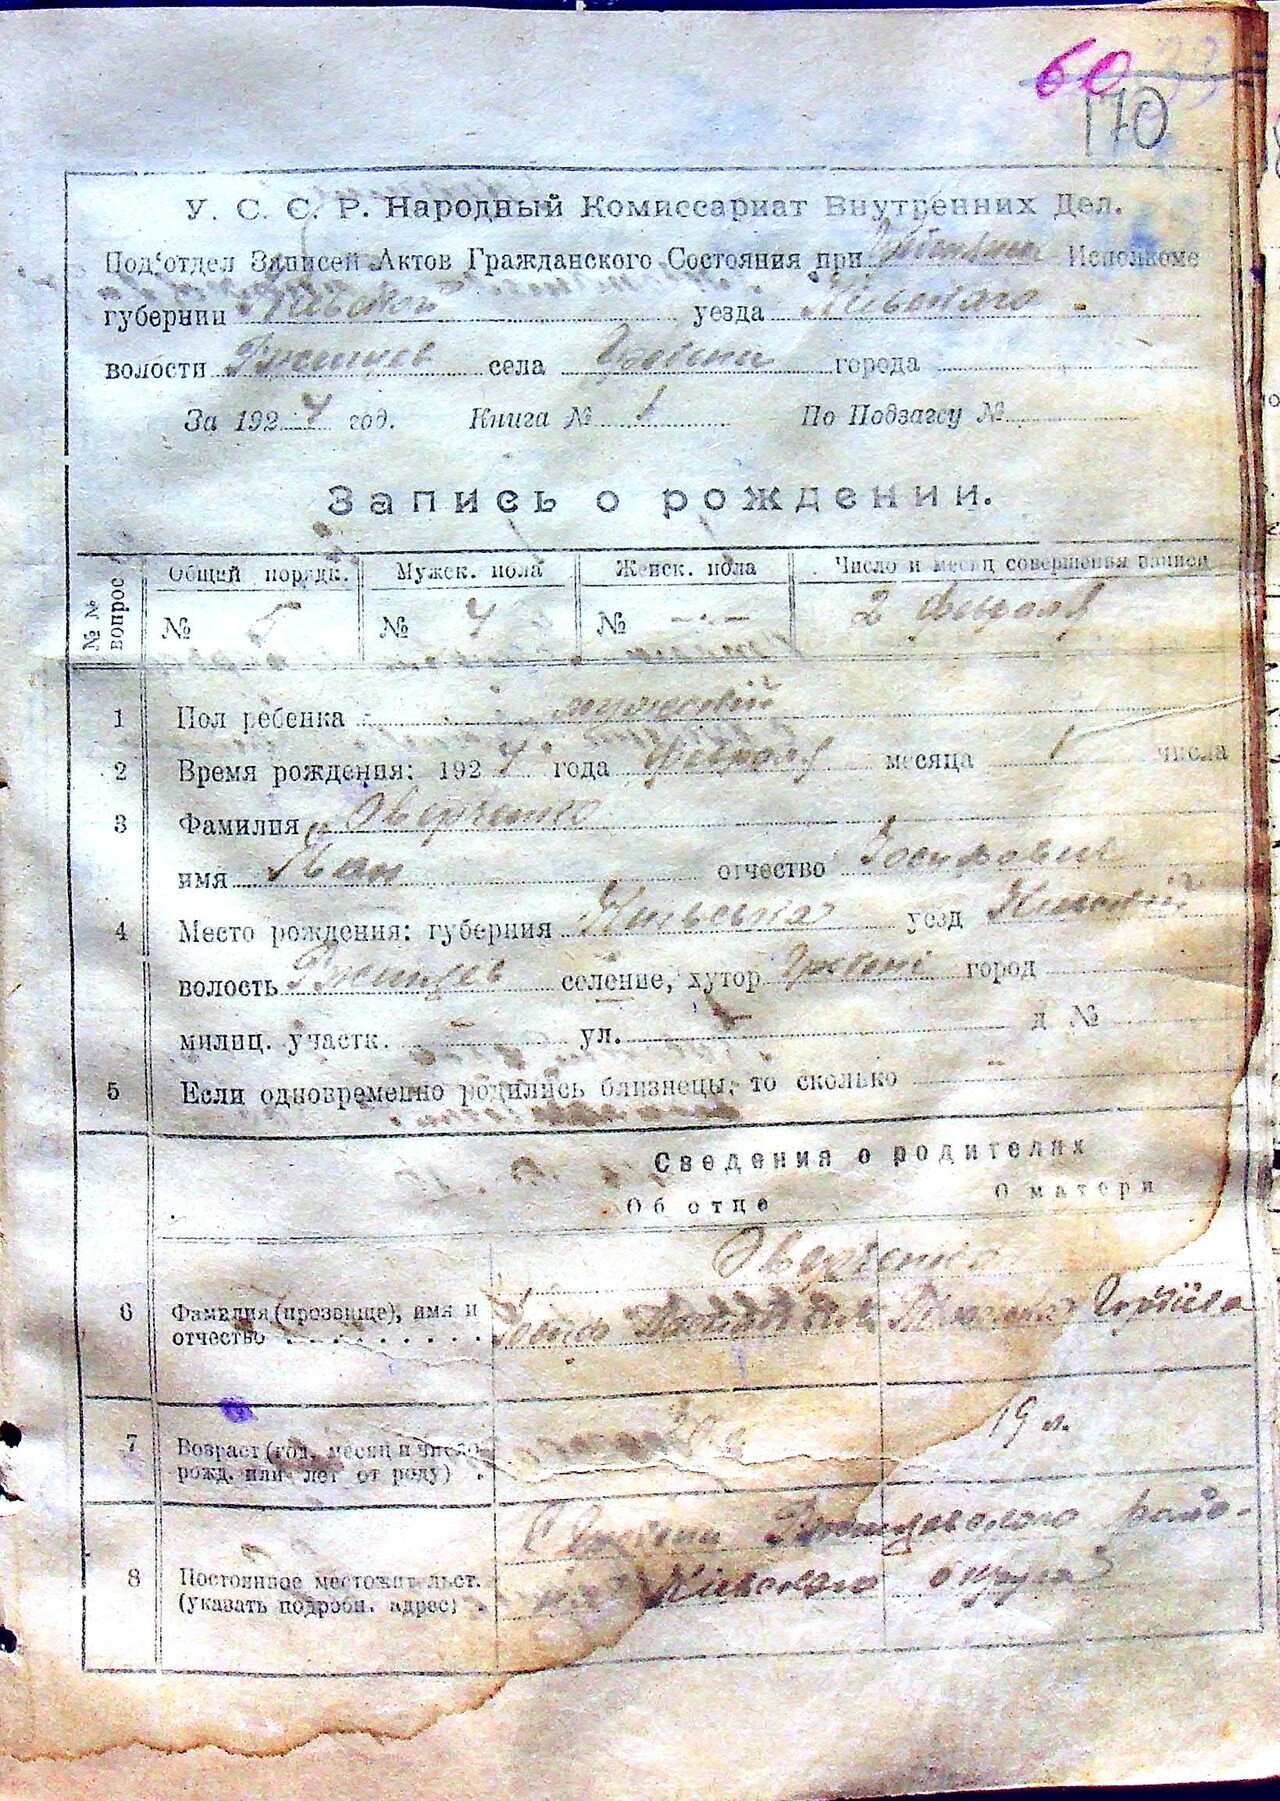 60
170
У. С. С. Р. Народный Комиссариат Внутренних Дел.
Под'отдел Записей Актов Гражданского Состояния при Исполкоме
губернии Киевской уезда Киевского
волости Ржищев села Гребени города
За 1924 год. Книга № 1 По Подзагсу №
Запись о рождении.
№№ вопрос Общий порядк. Мужск. пола Женск. пола Число и месяц совершения записи
№ 5 № 4 № — 2 Февраля
1 Пол ребенка мужской
2 Время рождения: 1924 года Февраля месяца 1 числа
3 Фамилия Оверченко
имя Иван отчество Иосифович
4 Место рождения: губерния Киевская уезд Киевский
волость Ржищев селение, хутор Гребені город
милиц. участк. — ул. — д №
5 Если одновременно родились близнецы, то сколько —
Сведения о родителях
Об отце О матери
Оверченко
6 Фамилия (прозвище), имя и
отчество
7 Возраст (год, месяц и число 20 л. 19 л.
рожд. или лет от роду)
с Гребени Ржищевского райо-
8 Постоянное местожительст. на Киевского округа
(указать подробн. адрес)